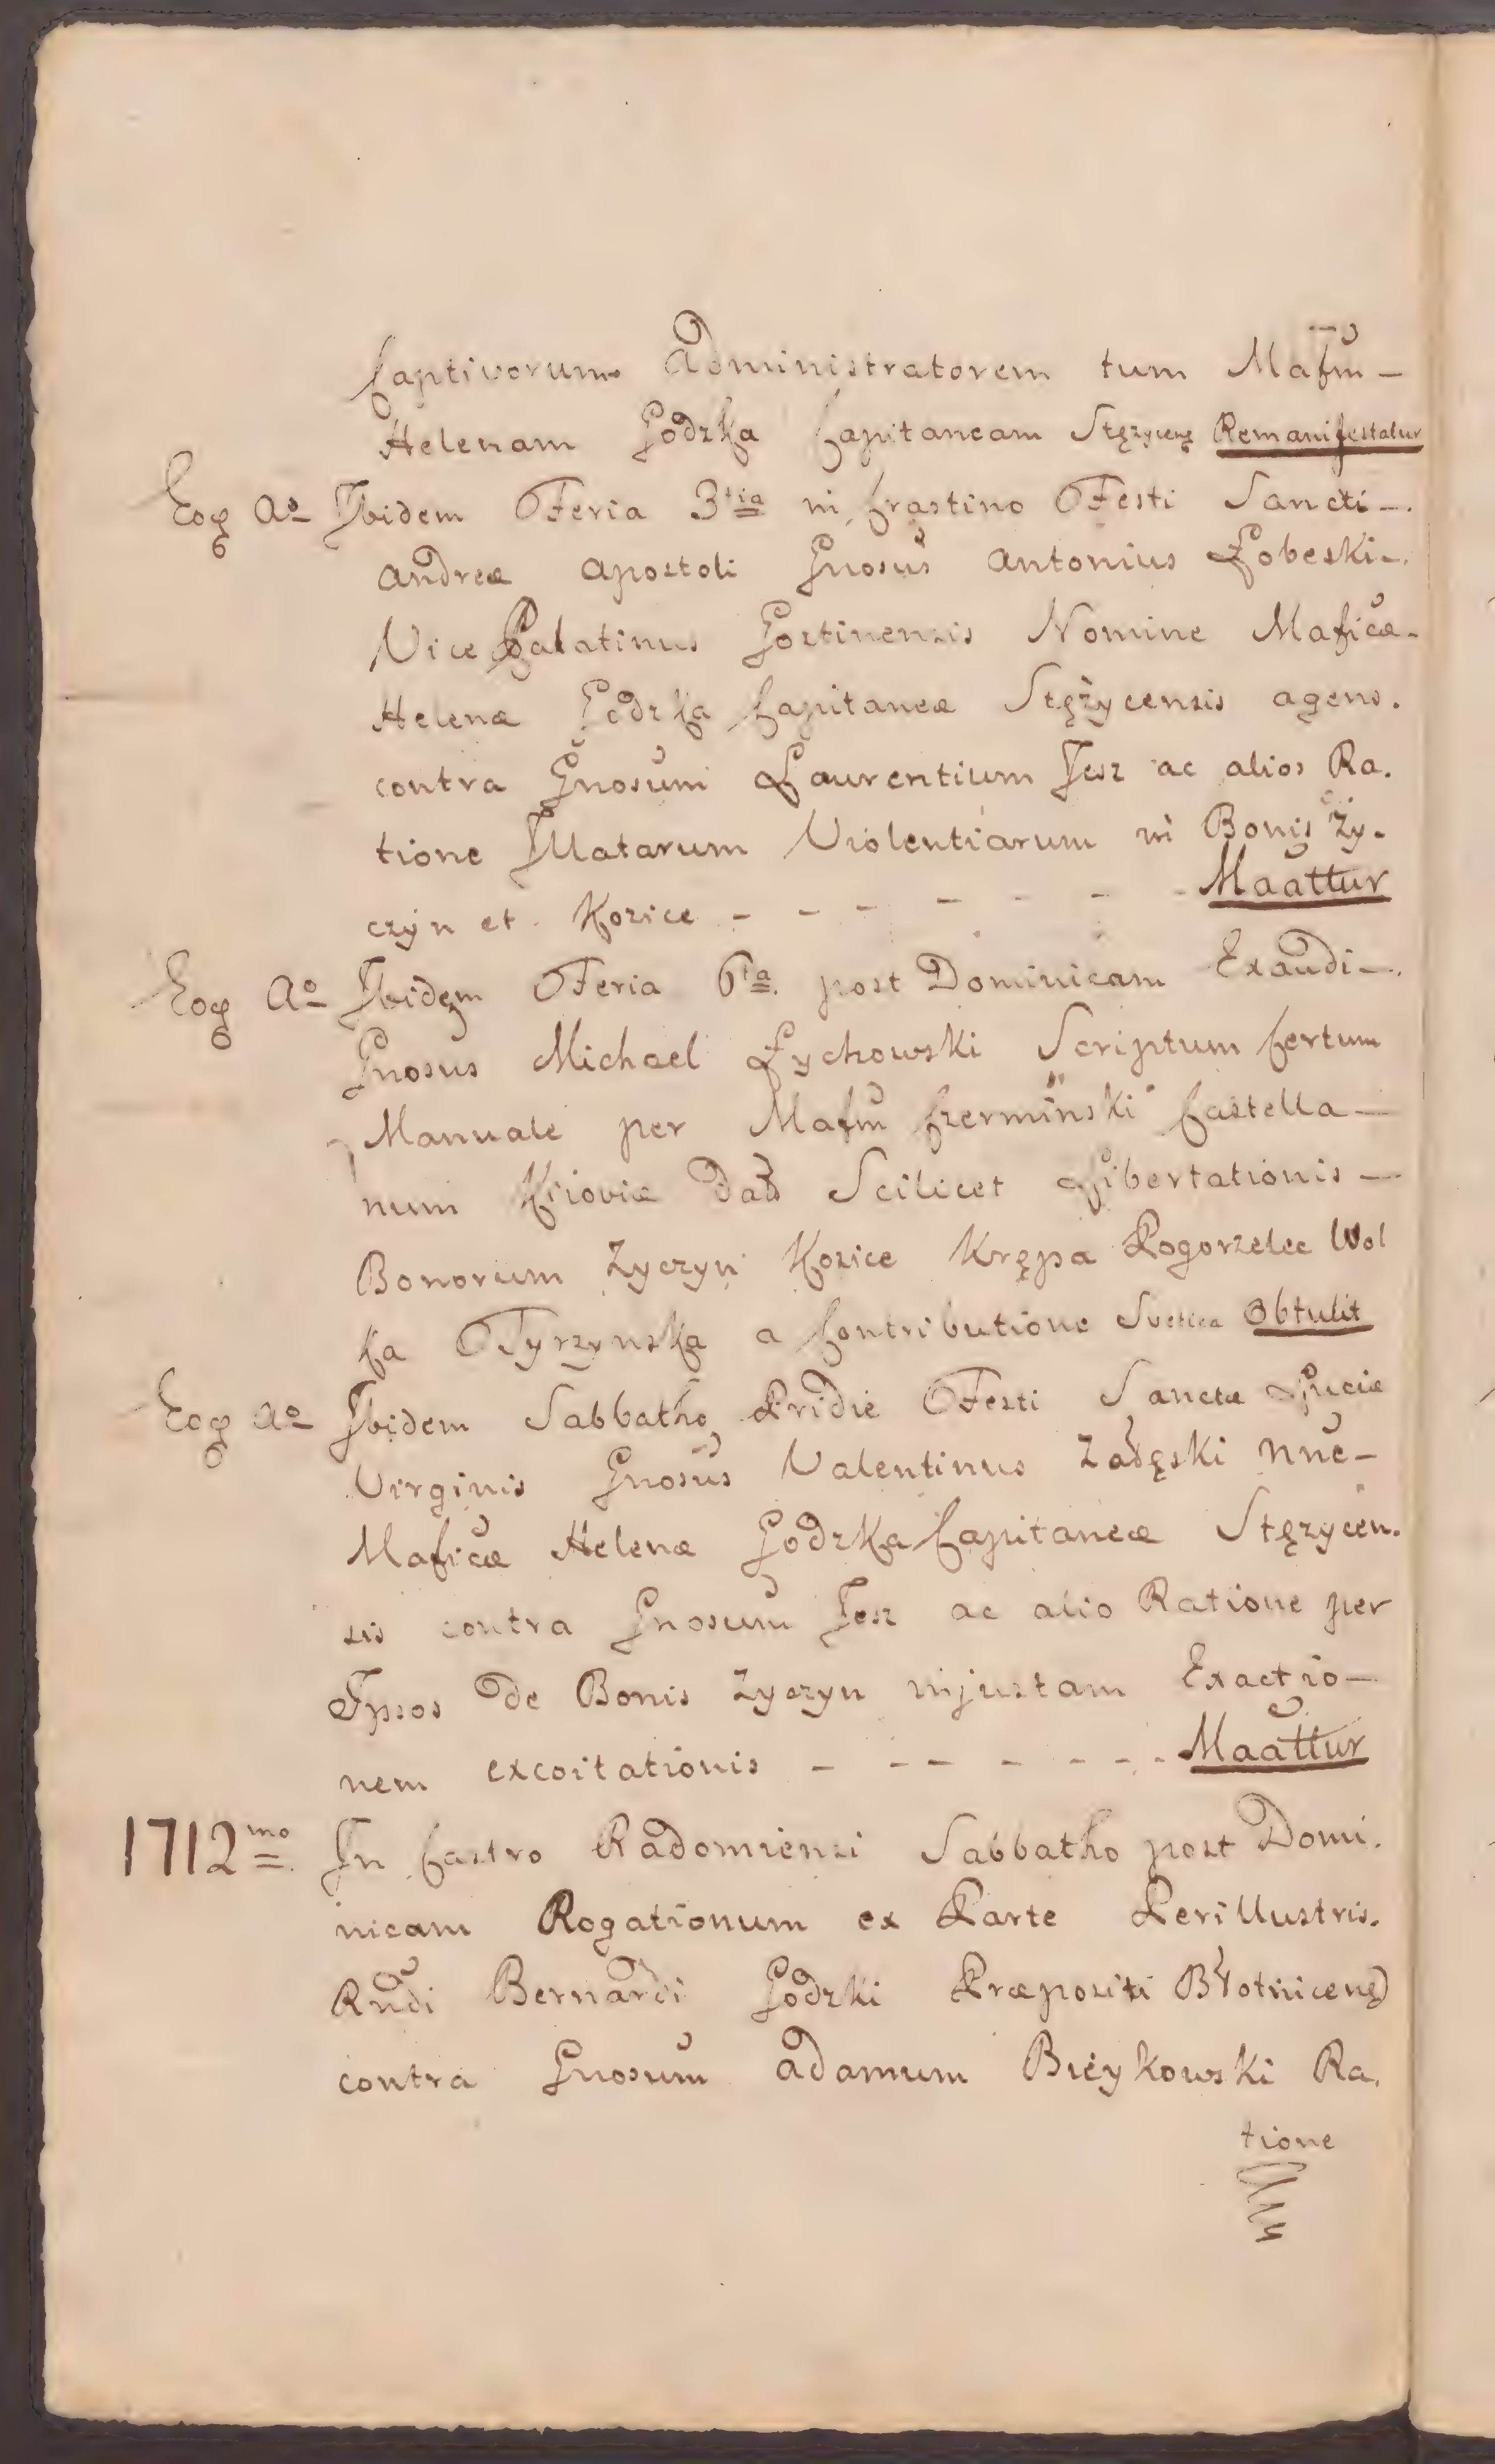 Captivorum Administratorem tum Mafm̃ –
Helenam Godzka Capitaneam Stężyceng Remanifestatur
Eoq̃ Aº Ibidem Feria 3tia in Crastino Festi Sancti –
Andreæ Apostoli Gnosus Antonius Łobeski –
Vice Palatinus Gostinensis Nomine Maficæ –
Helenæ Godzka Capitaneæ Stężycensis agens.
contra Gnosum Laurentium Jesz ac alios Ra.
tione Illatarum Violentiarum in Bonis Ży.
czyn et. Kozice – – – – – – – Maattur
Eoq̃ Aº Ibidem Feria 6ta. post Dominicam Exaudi –
Gnosus Michael Łychowski Scriptum Certum
Manuale per Mafm̃ Czerminski Castella –
num Kiioviæ Dað Scilicet Libertationis –
Bonorum Życzyn Kozice Krępa Pogorzelec Wol
ka Tyrzynska a Contributione Svetica Obtulit
Eoq̃ Aº Ibidem Sabbatho Pridie Festi Sanctæ Luciæ
Virginis Gnosus Valentinus Zadęski Nñe –
Maficæ Helenæ Godzka Capitaneæ Stęzycen.
sis contra Gnosum Jesz ac alio Ratione per
Ipsos De Bonis Zyczyn injustam Exactio –
nem excoitationis – – – – – – – Maattur
1712mo In Castro Radomiensi Sabbatho post Domi.
nicam Rogationum ex Parte Perillustris.
Rndi Bernardi Godzki Præpositi Błotniceng
contra Gnosum Adamum Bieykowski Ra.
tione